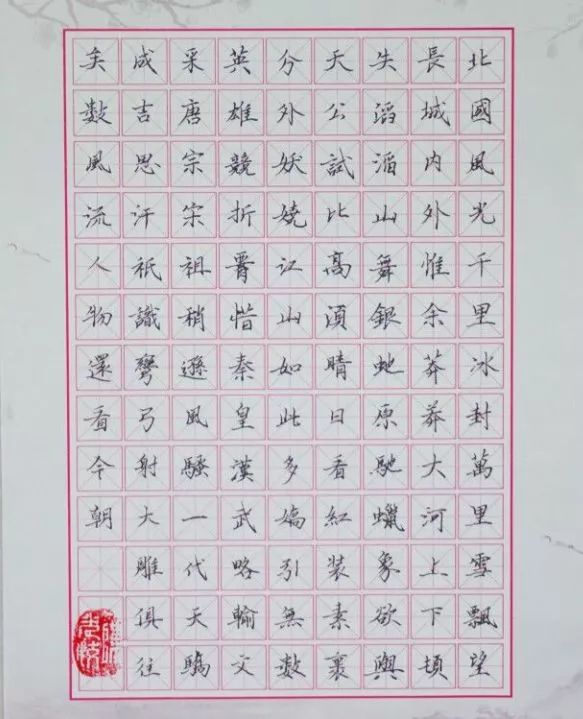 北國風光千里冰封萬里雪飄望
長城内外惟余莽莽大河上下頓
失滔滔山舞銀虵原馳蠟象欲與
天公試比高須晴日看紅裝素裹
分外妖嬈江山如此多嬌引無數
英雄競折惜秦皇漢武略輸文
采唐宗宋祖稍遜風騷一代天驕
成吉思汗祇識彎弓射大雕俱往
矣數風流人物還看今朝